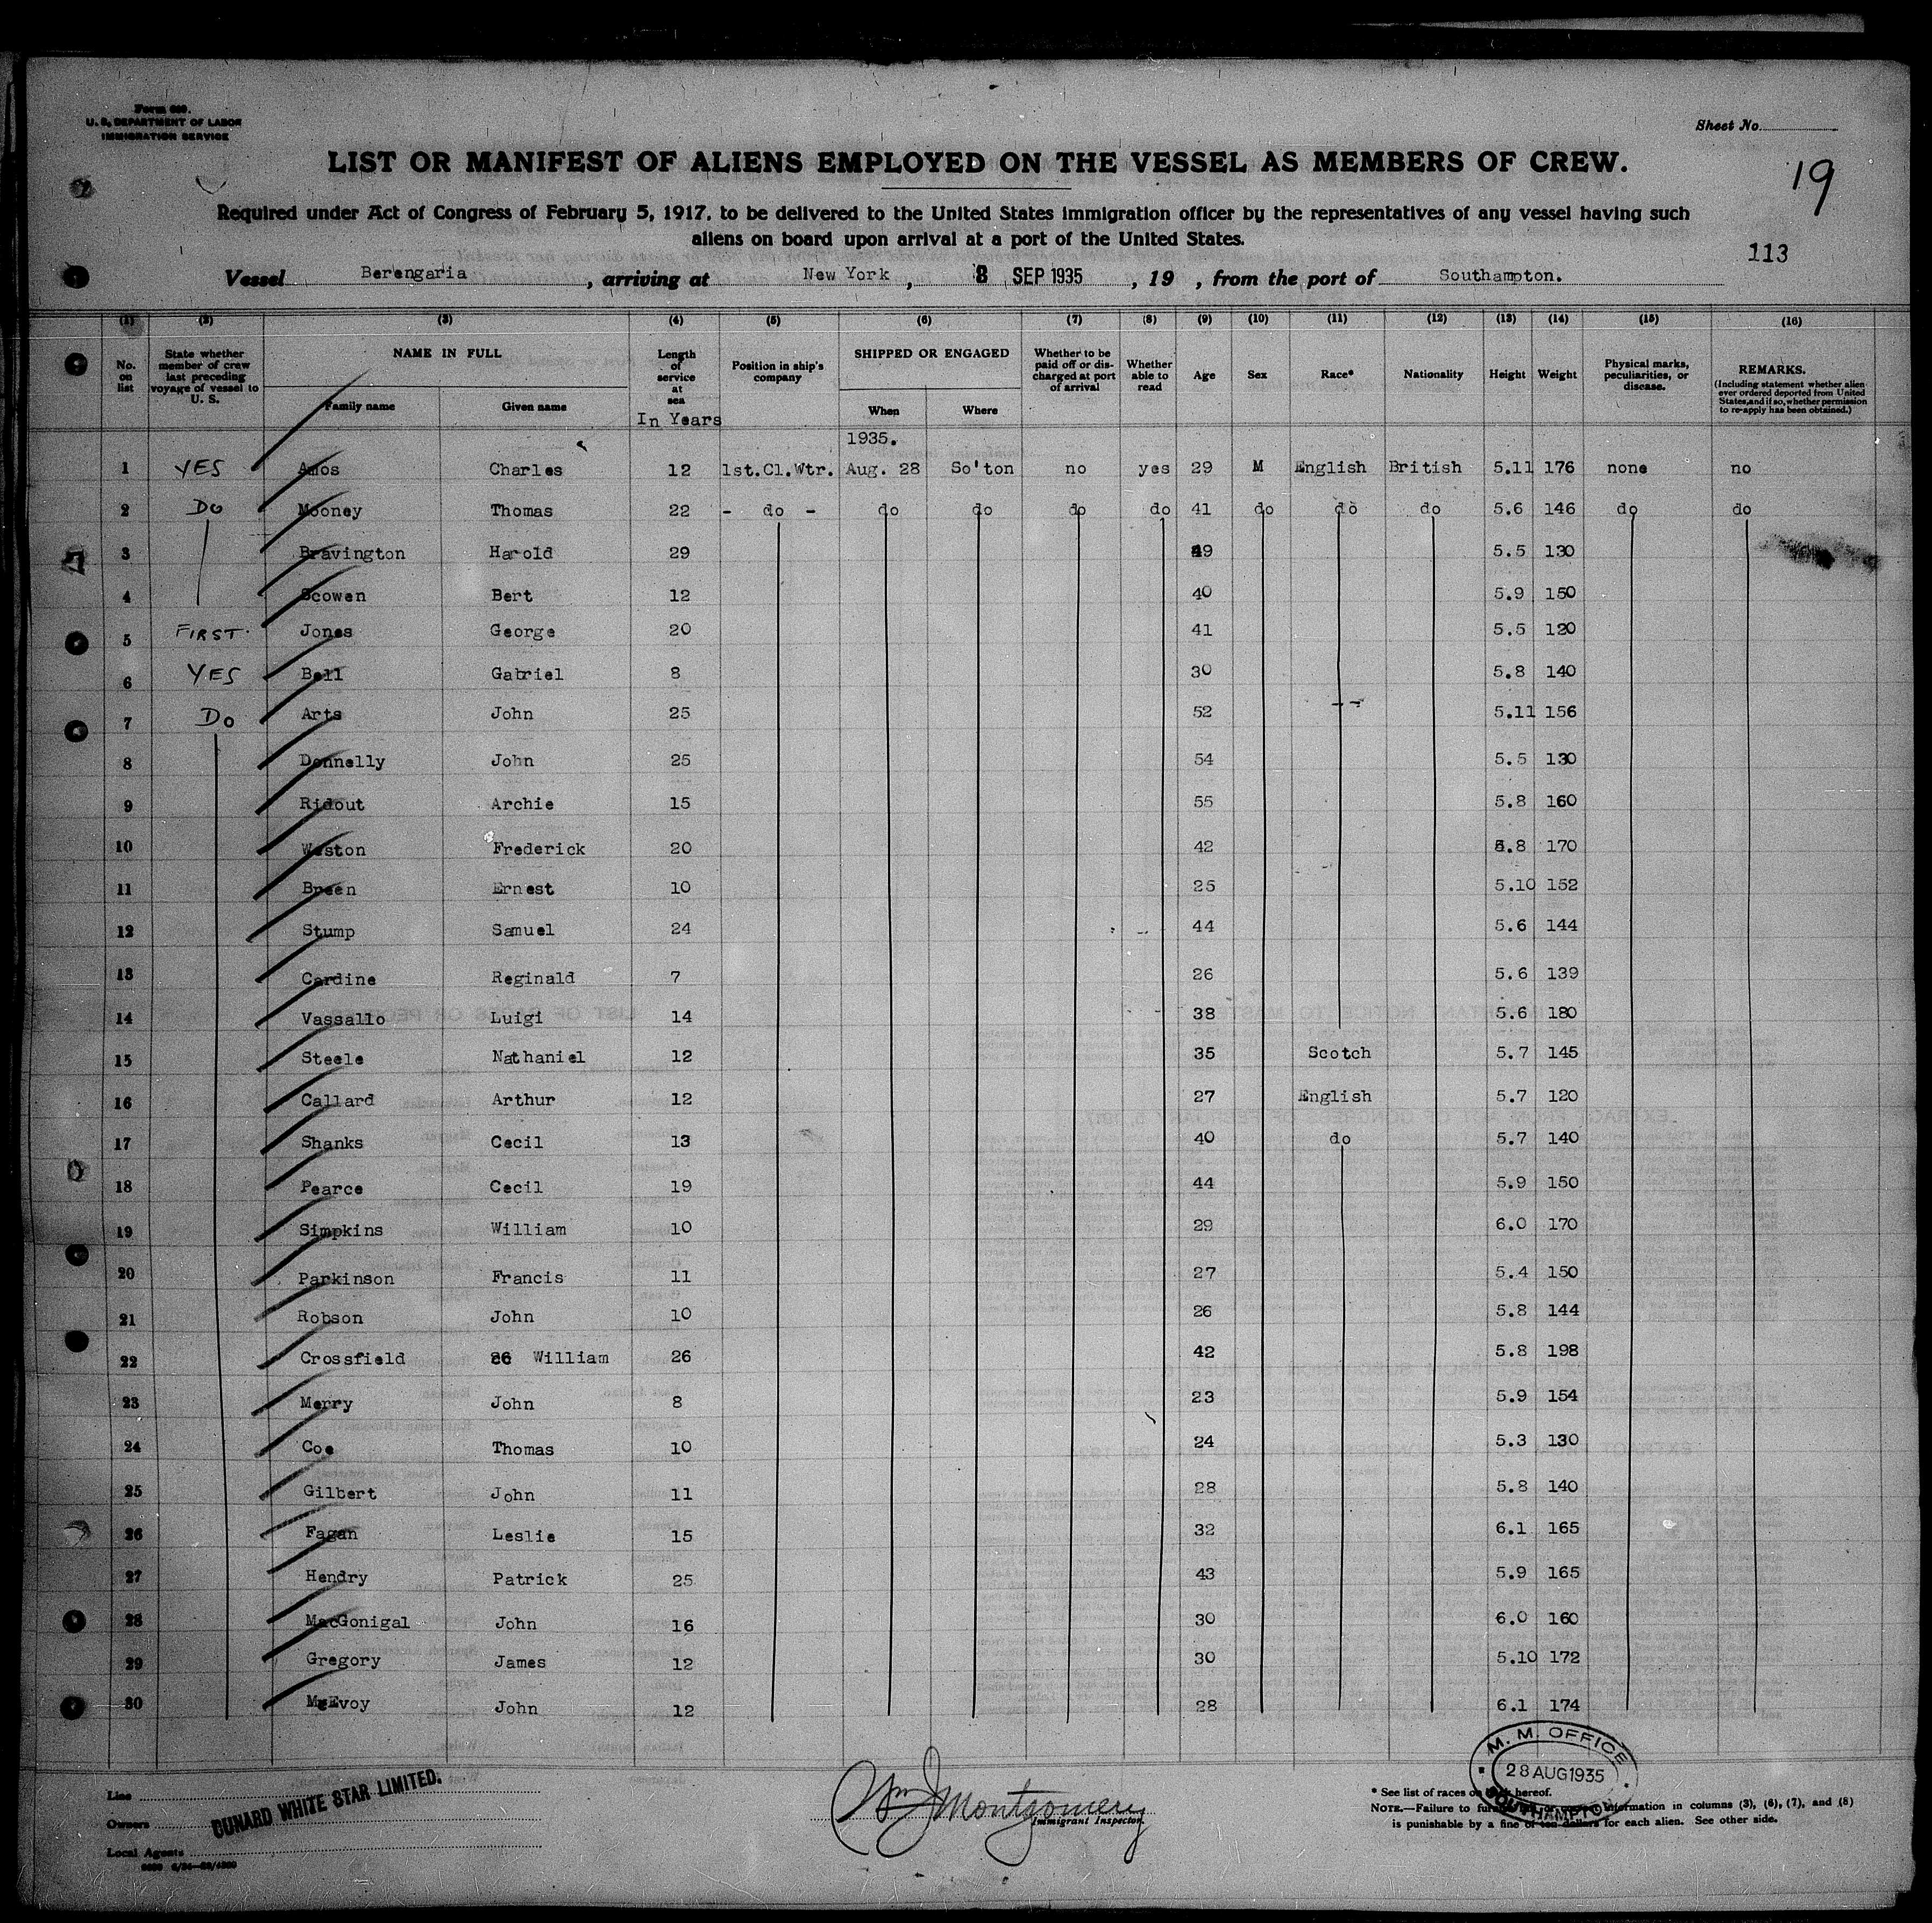 Form 680.
U. S. DEPARTMENT OF LABOR
IMMIGRATION SERVICE
Sheet No.
LIST OR MANIFEST OF ALIENS EMPLOYED ON THE VESSEL AS MEMBERS OF CREW.
19
Required under Act of Congress of February 5, 1917, to be delivered to the United States immigration officer by the representatives of any vessel having such
aliens on board upon arrival at a port of the United States.
113
Vessel Berengaria, arriving at New York, 8 SEP 1935, 19 , from the port of Southampton.
(1) (2) (3) (4) (5) (6) (7) (8) (9) (10) (11) (12) (13) (14) (15) (16)
No. on list
State whether member of crew last preceding voyage of vessel to U. S.
NAME IN FULL
Family name Given name
Length of service at sea
In Years
Position in ship's company
SHIPPED OR ENGAGED
When Where
Whether to be paid off or discharged at port of arrival
Whether able to read
Age
Sex
Race*
Nationality
Height
Weight
Physical marks, peculiarities, or disease.
REMARKS.
(Including statement whether alien ever ordered deported from United States, and if so, whether permission to re-apply has been obtained.)
1935.
1 YES Amos Charles 12 1st.Cl.Wtr. Aug. 28 So'ton no yes 29 M English British 5.11 176 none no
2 DO Mooney Thomas 22 - do - do do do do 41 do do do 5.6 146 do do
3 Bravington Harold 29 49 5.5 130
4 Scowen Bert 12 40 5.9 150
5 FIRST. Jones George 20 41 5.5 120
6 YES Bell Gabriel 8 30 5.8 140
7 Do Arts John 25 52 5.11 156
8 Donnelly John 25 54 5.5 130
9 Ridout Archie 15 55 5.8 160
10 Weston Frederick 20 42 5.8 170
11 Breen Ernest 10 25 5.10 152
12 Stump Samuel 24 44 5.6 144
13 Cardine Reginald 7 26 5.6 139
14 Vassallo Luigi 14 38 5.6 180
15 Steele Nathaniel 12 35 Scotch 5.7 145
16 Callard Arthur 12 27 English 5.7 120
17 Shanks Cecil 13 40 do 5.7 140
18 Pearce Cecil 19 44 5.9 150
19 Simpkins William 10 29 6.0 170
20 Parkinson Francis 11 27 5.4 150
21 Robson John 10 26 5.8 144
22 Crossfield William 26 42 5.8 198
23 Merry John 8 23 5.9 154
24 Coe Thomas 10 24 5.3 130
25 Gilbert John 11 28 5.8 140
26 Fagan Leslie 15 32 6.1 165
27 Hendry Patrick 25 43 5.9 165
28 MacGonigal John 16 30 6.0 160
29 Gregory James 12 30 5.10 172
30 McEvoy John 12 28 6.1 174
M. M. OFFICE
28 AUG 1935
SOUTHAMPTON
Line
Owners
CUNARD WHITE STAR LIMITED.
Local Agents
Wm J Montgomery
Immigrant Inspector.
* See list of races on back hereof.
NOTE.—Failure to furnish full or correct information in columns (3), (6), (7), and (8)
is punishable by a fine of ten dollars for each alien. See other side.